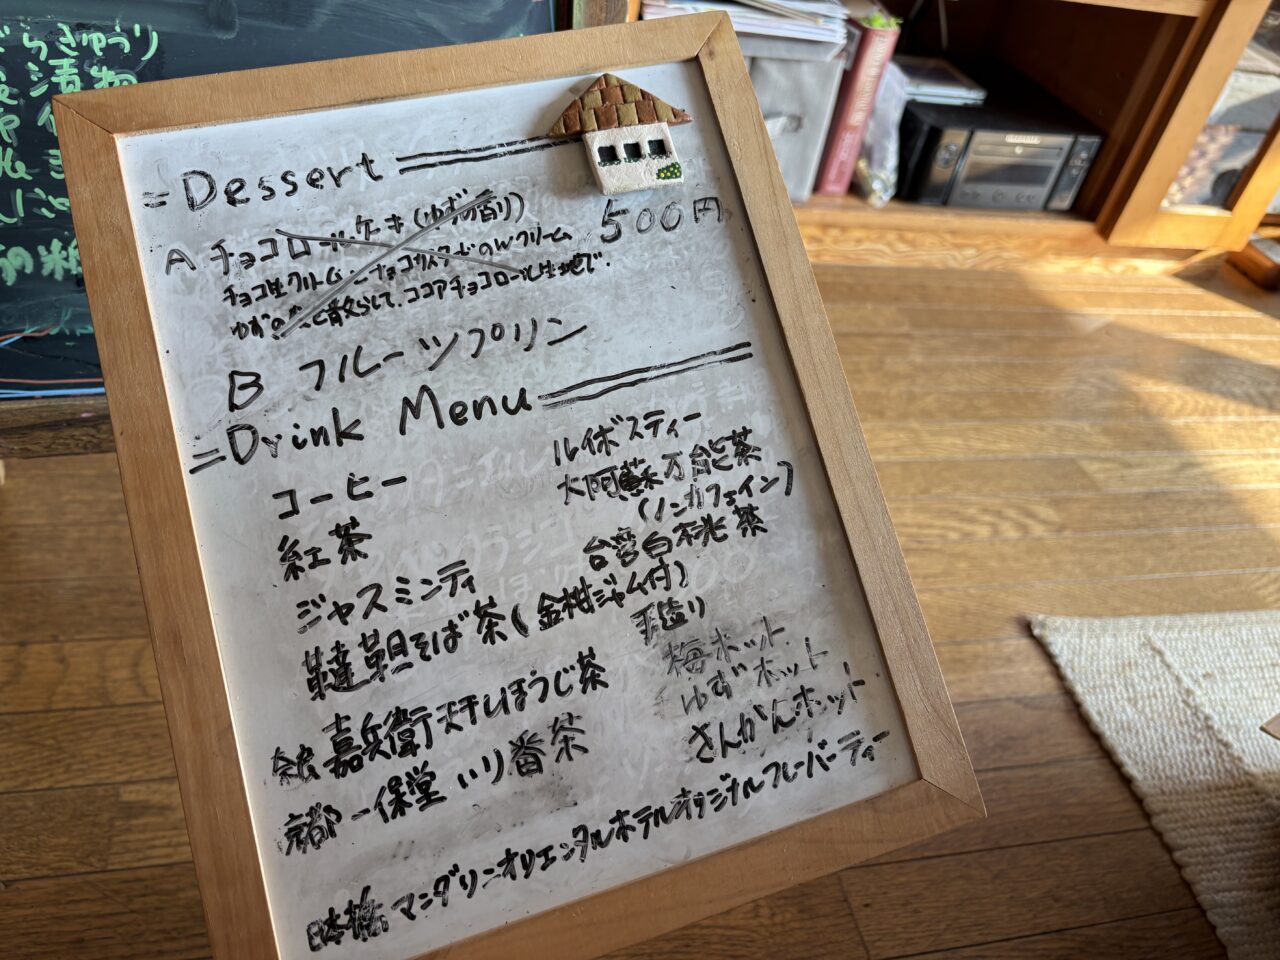 Dessert
A チョコロールケーキ(ゆずの香り)
500円
チョコ生クリーム
チョコカスタードのWクリーム
ゆずの
散らして、ココアチョコロール生地で.
B フルーツプリン
Drink Menu
コーヒー
紅茶
ジャスミンティ
韃靼そば茶(金柑ジャム付)
手造り
嘉兵衛天干しほうじ茶
京都 一保堂 いり番茶
日本橋 マンダリンオリエンタルホテルオリジナルフレーバーティー
ルイボスティー
大阿蘇万能茶
(ノンカフェイン)
台湾白桃茶
梅ホット
ゆずホット
きんかんホット